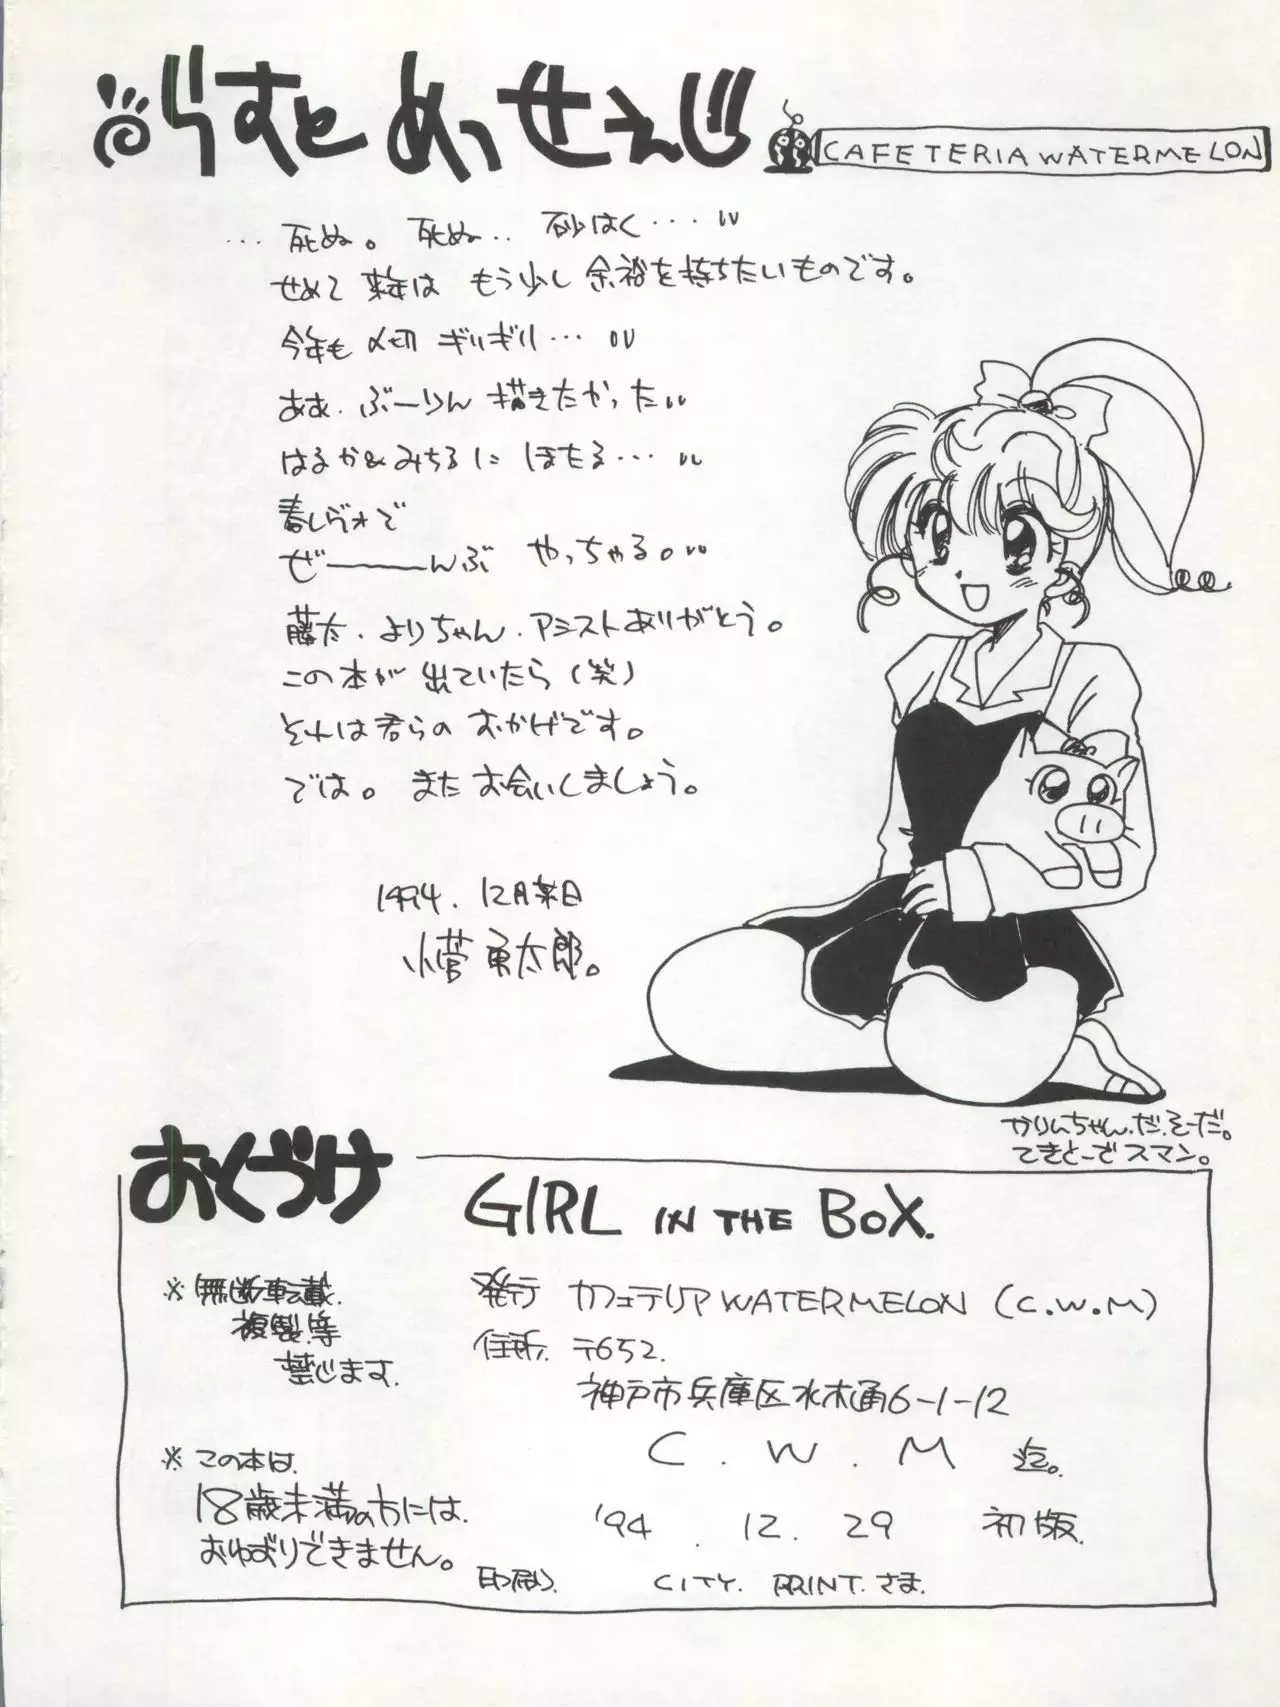 らすとめっせえじ
CAFETERIA WATERMELON
…死ぬ。死ぬ‥ 砂はく…
せめて来年は もう少し余裕を持ちたいものです。
今年も〆切ギリギリ…
ああ、ぶーりん描きたかった
はるか&みちるにほたる…
春レヴォで
ぜーーんぶ やっちゃる。
藤太、よりちゃん、アシストありがとう。
この本が出ていたら(笑)
それは君らのおかげです。
では。またお会いしましょう。
1994. 12月某日
小菅勇太郎。
かりんちゃん、だ、そーだ。
てきとーでスマン。
おくづけ
GIRL IN THE BOX.
※無断転載、
複製等
禁じます。
※この本は、
18歳未満の方には、
おゆずりできません。
発行 カフェテリアWATERMELON (C.W.M)
住所 〒652.
神戸市兵庫区水木通6-1-12
C.W.M 迄。
'94.12.29 初版.
印刷 CITY. PRINT. さま.